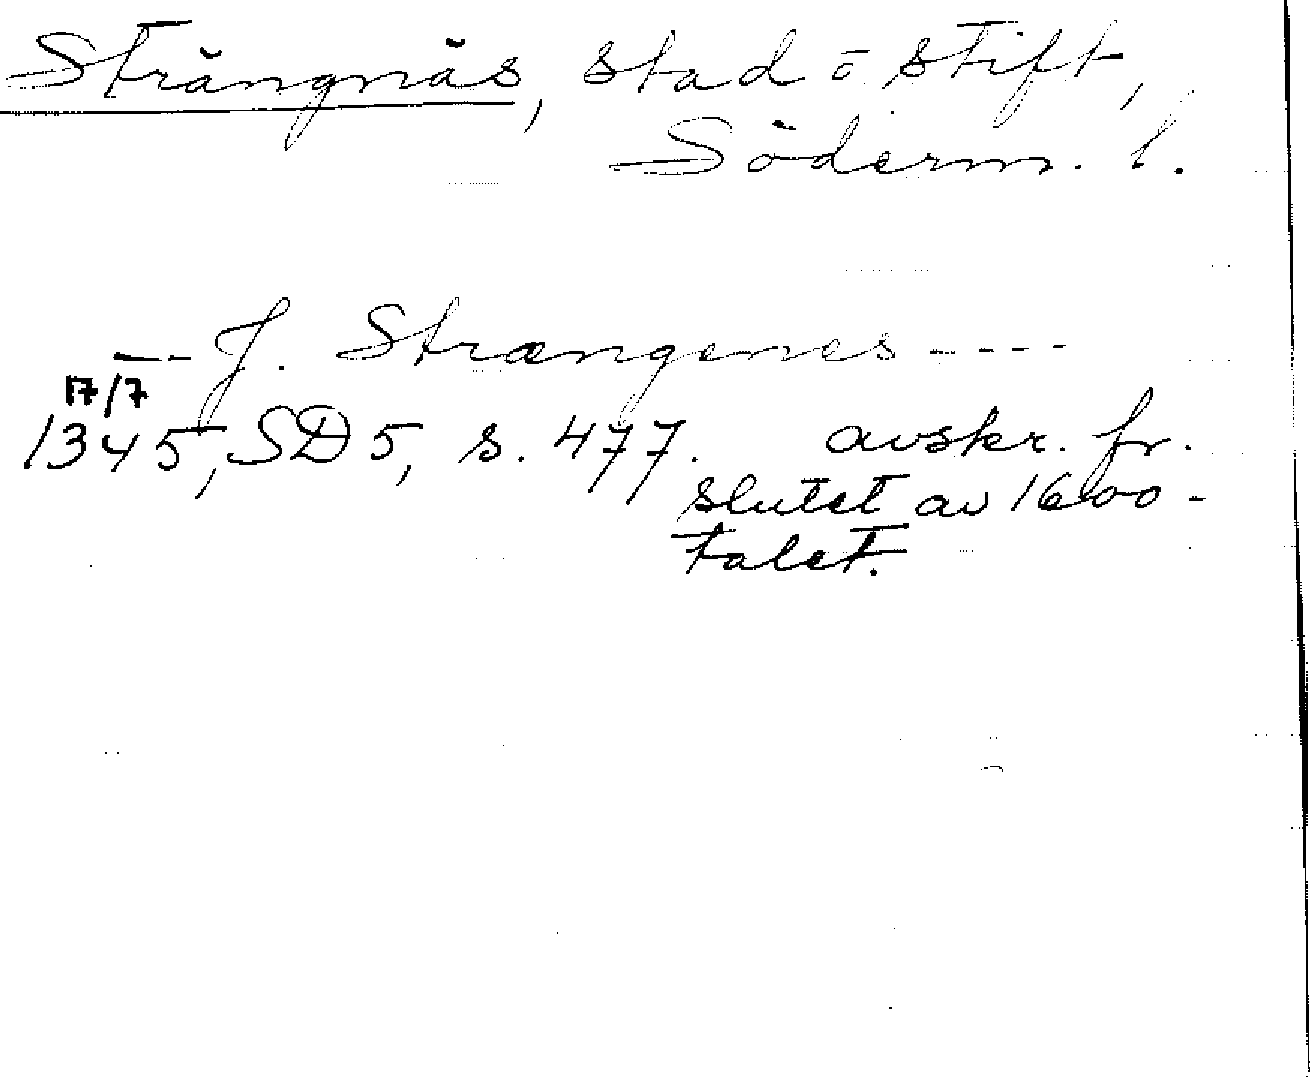 Strängnäs, stad o stift,
Söderm. l.
-- J. Strængenes ----
17/7
1345, SD 5, s. 477. avskr. fr.
slutet av 1600-
talet.